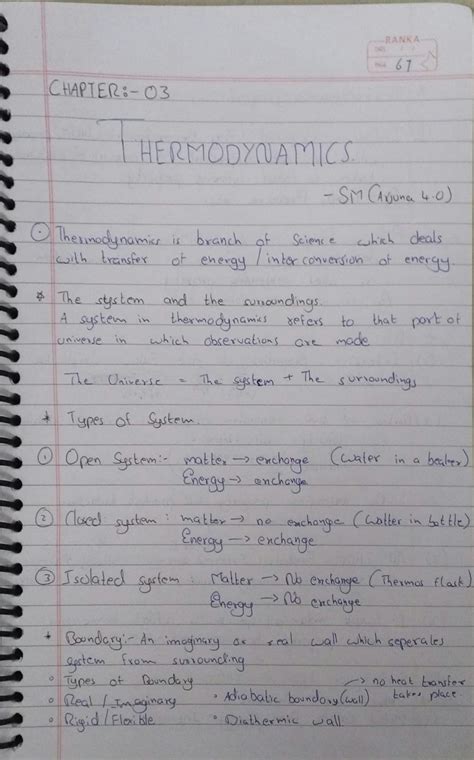 RANKA
DATE / /
PAGE 67
CHAPTER:- 03
THERMODYNAMICS.
- SM (Arjuna 4.0)
Thermodynamics is branch of Science which deals
with transfer of energy / inter conversion of energy.
* The system and the surroundings.
A system in thermodynamics refers to that part of
universe in which observations are made
The Universe = The system + The surroundings
* Types of System.
① Open System:- matter → exchange (water in a beaker)
Energy → exchange
② Closed system : matter → no exchange (Water in bottle)
Energy → exchange
③ Isolated system : Matter → No exchange (Thermos flask)
Energy → No exchange
* Boundary:- An imaginary or real wall which seperates
system from surrounding
• Types of Boundary → no heat transfer
• Real / Imaginary • Adiabatic boundary (wall) takes place.
• Rigid / Flexible • Diathermic wall